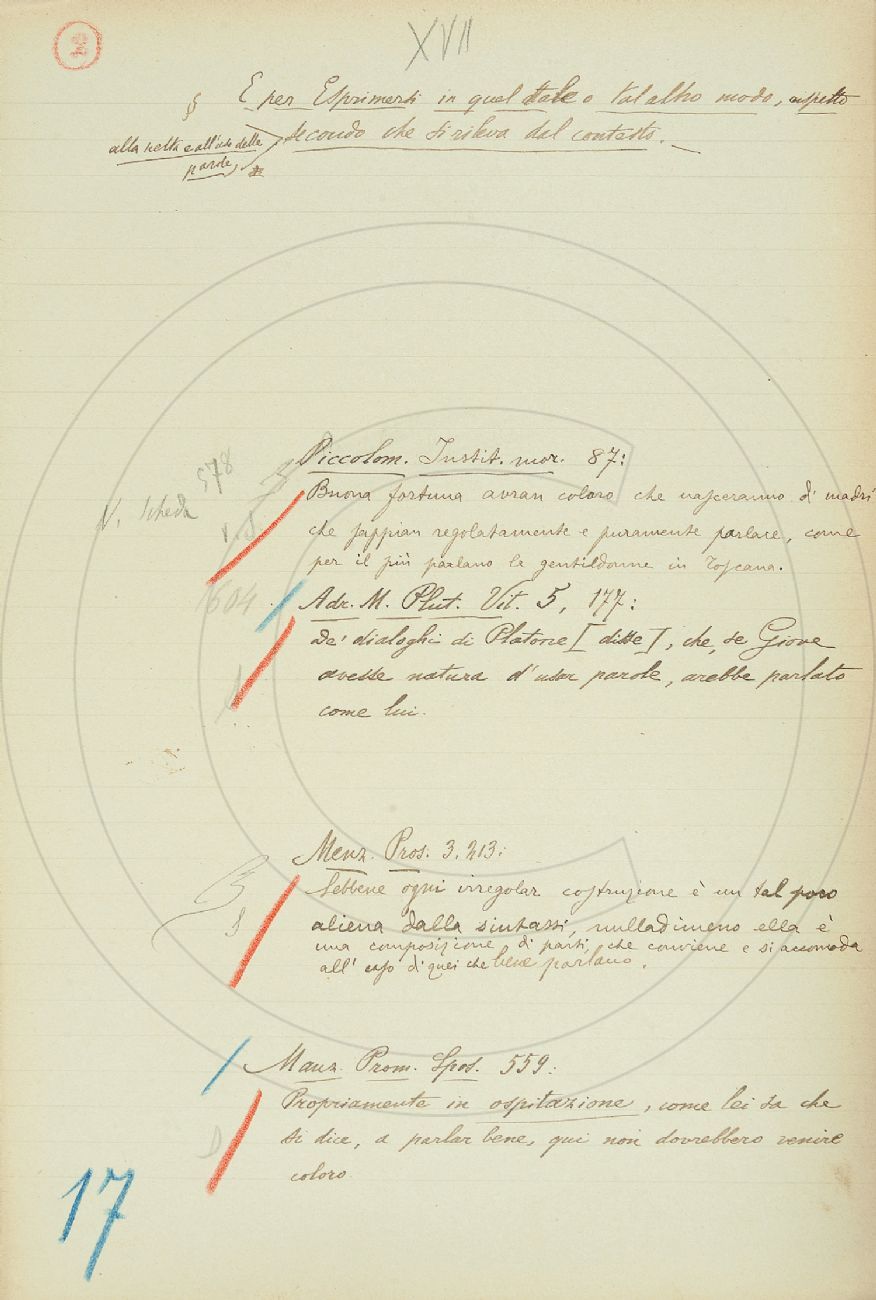 2
XVII
§ E per Esprimersi in quel tale o tal altro modo, rispetto
alla scelta e all'uso delle
parole,
secondo che si rileva dal contesto.
Piccolom. Instit. mor. 87:
N. Scheda 578
Buona fortuna avran coloro che nasceranno di madri
che sappian regolatamente e puramente parlare, come
per il più parlano le gentildonne in Toscana.
1604
Adr. M. Plut. Vit. 5, 177:
De' dialoghi di Platone [disse], che, se Giove
avesse natura d'usar parole, arebbe parlato
come lui.
Menz. Pros. 3. 213:
Sebbene ogni irregolar costruzione è un tal poco
aliena dalla sintassi, nulladimeno ella è
una composizione di parti, che conviene e si accomoda
all' uso di quei che bene parlano.
Manz. Prom. Spos. 559:
Propriamente in ospitazione, come lei sa che
si dice, a parlar bene, qui non dovrebbero venire
coloro
17